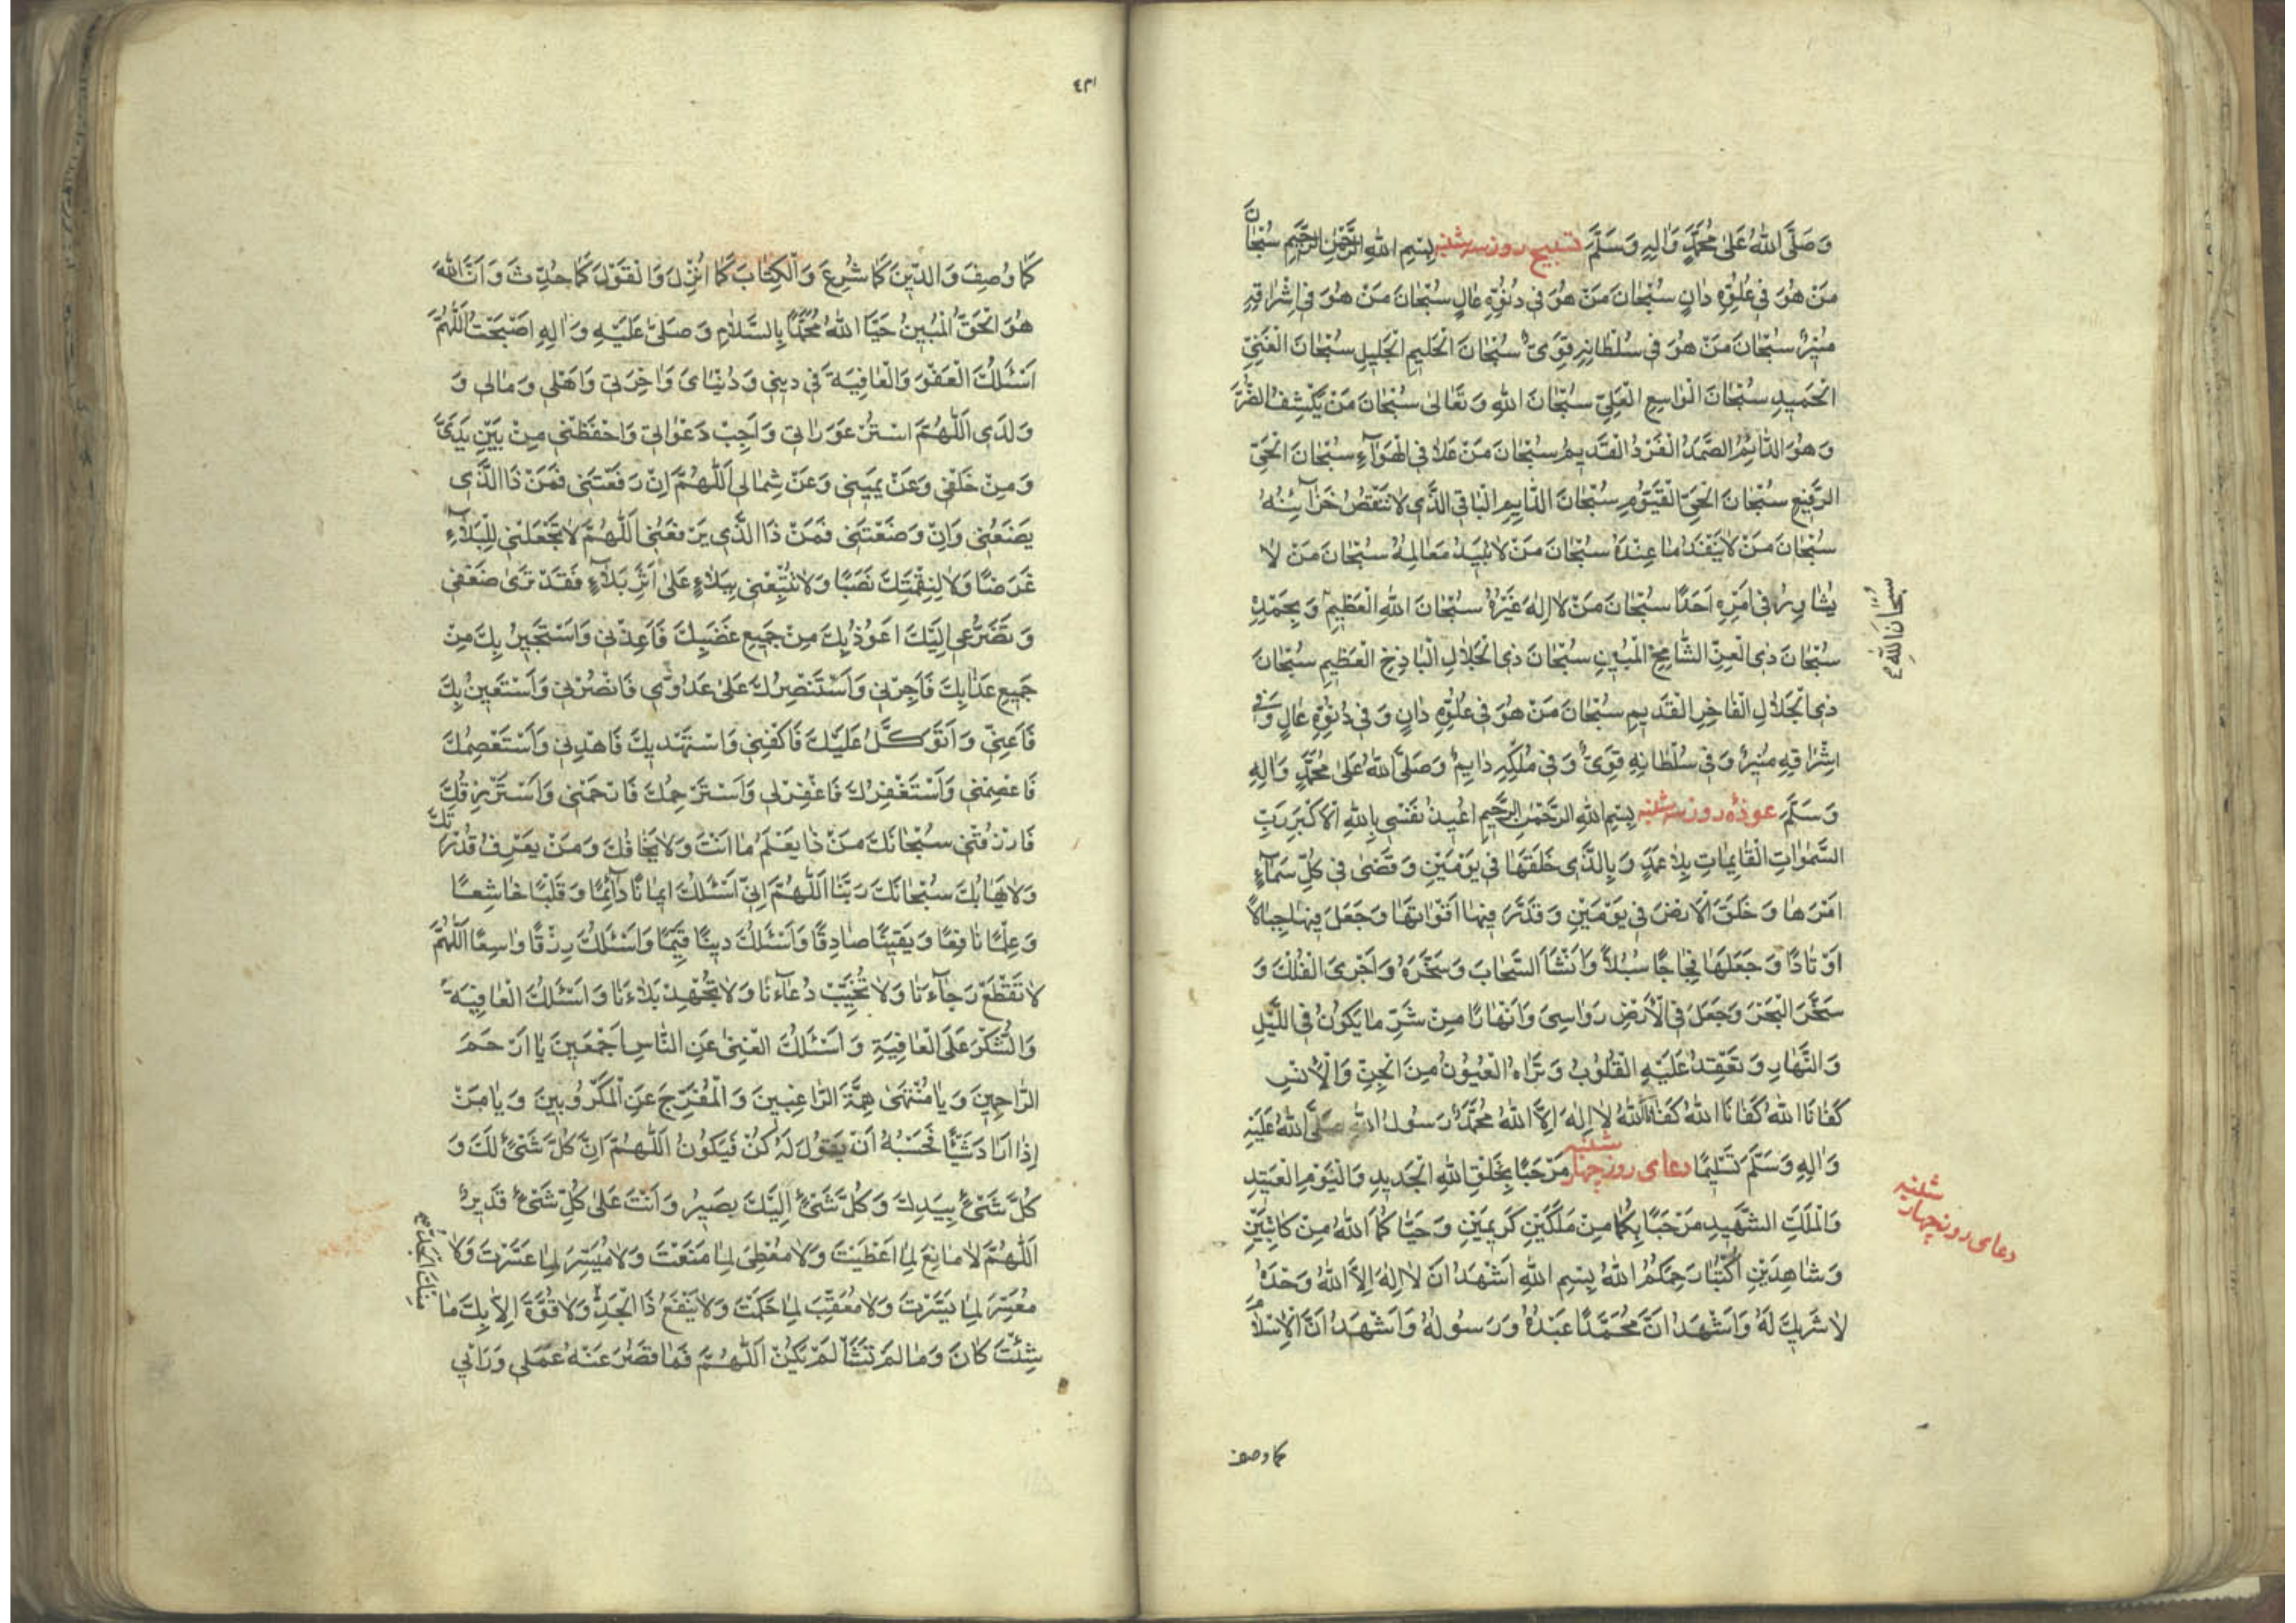 وَصَلَّى اللهُ عَلىٰ مُحَمَّدٍ وَاٰلِهِ وَسَلَّمَ تسبیح روز سه‌شنبه بِسْمِ اللهِ الرَّحْمٰنِ الرَّحِيمِ سُبْحٰانَ
مَنْ هُوَ فِي عُلُوِّهِ دٰانٍ سُبْحٰانَ مَنْ هُوَ فِي دُنُوِّهِ عٰالٍ سُبْحٰانَ مَنْ هُوَ فِي اِشْرٰاقِهِ
مُنِيرٌ سُبْحٰانَ مَنْ هُوَ فِي سُلْطٰانِهِ قَوِيٌّ سُبْحٰانَ الْحَلِيمِ الْجَلِيلِ سُبْحٰانَ الْغَنِيِّ
الْحَمِيدِ سُبْحٰانَ الْوٰاسِعِ الْعَلِيِّ سُبْحٰانَ اللهِ وَتَعٰالىٰ سُبْحٰانَ مَنْ يَكْشِفُ الضُّرَّ
وَهُوَ الدّٰائِمُ الصَّمَدُ الْفَرْدُ الْقَدِيمُ سُبْحٰانَ مَنْ عَلاٰ فِي الْهَوٰآءِ سُبْحٰانَ الْحَيِّ
الرَّفِيعِ سُبْحٰانَ الْحَيِّ الْقَيُّومِ سُبْحٰانَ الدّٰايِمِ الْبٰاقِي الَّذِي لاٰ تَنْقُصُ خَزٰآئِنُهُ
سُبْحٰانَ مَنْ لاٰ يَنْفَدُ مٰا عِنْدَهُ سُبْحٰانَ مَنْ لاٰ تَبِيدُ مَعٰالِمُهُ سُبْحٰانَ مَنْ لاٰ
يُشٰاوِرُ فِي اَمْرِهِ اَحَدًا سُبْحٰانَ مَنْ لاٰ اِلٰهَ غَيْرُهُ سُبْحٰانَ اللهِ الْعَظِيمِ وَبِحَمْدِهِ
سُبْحَانَ اللهِ
سُبْحٰانَ ذِي الْعِزِّ الشّٰامِخِ الْمُبِينِ سُبْحٰانَ ذِي الْجَلاٰلِ الْبٰاذِخِ الْعَظِيمِ سُبْحٰانَ
ذِي الْجَلاٰلِ الْفٰاخِرِ الْقَدِيمِ سُبْحٰانَ مَنْ هُوَ فِي عُلُوِّهِ دٰانٍ وَفِي دُنُوِّهِ عٰالٍ وَفِي
اِشْرٰاقِهِ مُنِيرٌ وَفِي سُلْطٰانِهِ قَوِيٌّ وَفِي مُلْكِهِ دٰايِمٌ وَصَلَّى اللهُ عَلىٰ مُحَمَّدٍ وَاٰلِهِ
وَسَلَّمَ عوذهٔ روز سه‌شنبه بِسْمِ اللهِ الرَّحْمٰنِ الرَّحِيمِ اُعِيذُ نَفْسِي بِاللهِ الْاَكْبَرِ رَبِّ
السَّمٰوٰاتِ الْقٰائِمٰاتِ بِلاٰ عَمَدٍ وَبِالَّذِي خَلَقَهٰا فِي يَوْمَيْنِ وَقَضىٰ فِي كُلِّ سَمٰآءٍ
اَمْرَهٰا وَخَلَقَ الْاَرْضَ فِي يَوْمَيْنِ وَقَدَّرَ فِيهٰا اَقْوٰاتَهٰا وَجَعَلَ فِيهٰا جِبٰالاً
اَوْتٰادًا وَجَعَلَهٰا فِجٰاجًا سُبُلاً وَاَنْشَاَ السَّحٰابَ وَسَخَّرَهُ وَاَجْرَى الْفُلْكَ وَ
سَخَّرَ الْبَحْرَ وَجَعَلَ فِي الْاَرْضِ رَوٰاسِيَ وَاَنْهٰارًا مِنْ شَرِّ مٰا يَكُونُ فِي اللَّيْلِ
وَالنَّهٰارِ وَتَعْقِدُ عَلَيْهِ الْقُلُوبُ وَتَرٰاهُ الْعُيُونُ مِنَ الْجِنِّ وَالْاِنْسِ
كَفٰانَا اللهُ كَفٰانَا اللهُ كَفٰانَا اللهُ لاٰ اِلٰهَ اِلاَّ اللهُ مُحَمَّدٌ رَسُولُ اللهِ صَلَّى اللهُ عَلَيْهِ
وَاٰلِهِ وَسَلَّمَ تَسْلِيمًا دعای روز چهارشنبه مَرْحَبًا بِخَلْقِ اللهِ الْجَدِيدِ وَالْيَوْمِ الْعَتِيدِ
دعای روز چهارشنبه
وَالْمَلَكِ الشَّهِيدِ مَرْحَبًا بِكُمٰا مِنْ مَلَكَيْنِ كَرِيمَيْنِ وَحَيّٰاكُمَا اللهُ مِنْ كٰاتِبَيْنِ
وَشٰاهِدَيْنِ اُكْتُبٰا رَحِمَكُمُ اللهُ بِسْمِ اللهِ اَشْهَدُ اَنْ لاٰ اِلٰهَ اِلاَّ اللهُ وَحْدَهُ
لاٰ شَرِيكَ لَهُ وَاَشْهَدُ اَنَّ مُحَمَّدًا عَبْدُهُ وَرَسُولُهُ وَاَشْهَدُ اَنَّ الْاِسْلاٰمَ
كما وصف
كَمٰا وُصِفَ وَالدِّينَ كَمٰا شُرِعَ وَالْكِتٰابَ كَمٰا اُنْزِلَ وَالْقَوْلَ كَمٰا حُدِّثَ وَاَنَّ اللهَ
هُوَ الْحَقُّ الْمُبِينُ حَيَّا اللهُ مُحَمَّدًا بِالسَّلاٰمِ وَصَلّىٰ عَلَيْهِ وَاٰلِهِ اَصْبَحْتُ اَللّٰهُمَّ
اَسْئَلُكَ الْعَفْوَ وَالْعٰافِيَةَ فِي دِينِي وَدُنْيٰايَ وَاٰخِرَتِي وَاَهْلِي وَمٰالِي وَ
وَلَدِي اَللّٰهُمَّ اسْتُرْ عَوْرٰاتِي وَاَجِبْ دَعْوٰاتِي وَاحْفَظْنِي مِنْ بَيْنِ يَدَيَّ
وَمِنْ خَلْفِي وَعَنْ يَمِينِي وَعَنْ شِمٰالِي اَللّٰهُمَّ اِنْ رَفَعْتَنِي فَمَنْ ذَا الَّذِي
يَضَعُنِي وَاِنْ وَضَعْتَنِي فَمَنْ ذَا الَّذِي يَرْفَعُنِي اَللّٰهُمَّ لاٰ تَجْعَلْنِي لِلْبَلاٰءِ
غَرَضًا وَلاٰ لِنِقْمَتِكَ نَصَبًا وَلاٰ تُتْبِعْنِي بِبَلاٰءٍ عَلىٰ اَثَرِ بَلاٰءٍ فَقَدْ تَرىٰ ضَعْفِي
وَتَضَرُّعِي اِلَيْكَ اَعُوذُ بِكَ مِنْ جَمِيعِ غَضَبِكَ فَاَعِذْنِي وَاَسْتَجِيرُ بِكَ مِنْ
جَمِيعِ عَذٰابِكَ فَاَجِرْنِي وَاَسْتَنْصِرُكَ عَلىٰ عَدُوِّي فَانْصُرْنِي وَاَسْتَعِينُ بِكَ
فَاَعِنِّي وَاَتَوَكَّلُ عَلَيْكَ فَاكْفِنِي وَاَسْتَهْدِيكَ فَاهْدِنِي وَاَسْتَعْصِمُكَ
فَاعْصِمْنِي وَاَسْتَغْفِرُكَ فَاغْفِرْ لِي وَاَسْتَرْحِمُكَ فَارْحَمْنِي وَاَسْتَرْزِقُكَ
فَارْزُقْنِي سُبْحٰانَكَ مَنْ ذٰا يَعْلَمُ مٰا اَنْتَ وَلاٰ يَخٰافُكَ وَمَنْ يَعْرِفُ قُدْرَتَكَ
وَلاٰ يَهٰابُكَ سُبْحٰانَكَ رَبَّنٰا اَللّٰهُمَّ اِنِّي اَسْئَلُكَ اِيمٰانًا دٰآئِمًا وَقَلْبًا خٰاشِعًا
وَعِلْمًا نٰافِعًا وَيَقِينًا صٰادِقًا وَاَسْئَلُكَ دِينًا قَيِّمًا وَاَسْئَلُكَ رِزْقًا وٰاسِعًا اَللّٰهُمَّ
لاٰ تَقْطَعْ رَجٰآءَنٰا وَلاٰ تُخَيِّبْ دُعٰآءَنٰا وَلاٰ تُجْهِدْ بَلاٰءَنٰا وَاَسْئَلُكَ الْعٰافِيَةَ
وَالشُّكْرَ عَلَى الْعٰافِيَةِ وَاَسْئَلُكَ الْغِنىٰ عَنِ النّٰاسِ اَجْمَعِينَ يٰا اَرْحَمَ
الرّٰاحِمِينَ وَيٰا مُنْتَهىٰ هِمَّةِ الرّٰاغِبِينَ وَالْمُفَرِّجَ عَنِ الْمَكْرُوبِينَ وَيٰا مَنْ
اِذٰا اَرٰادَ شَيْئًا فَحَسْبُهُ اَنْ يَقُولَ لَهُ كُنْ فَيَكُونُ اَللّٰهُمَّ اِنَّ كُلَّ شَيْءٍ لَكَ وَ
كُلَّ شَيْءٍ بِيَدِكَ وَكُلَّ شَيْءٍ اِلَيْكَ يَصِيرُ وَاَنْتَ عَلىٰ كُلِّ شَيْءٍ قَدِيرٌ
اَللّٰهُمَّ لاٰ مٰانِعَ لِمٰا اَعْطَيْتَ وَلاٰ مُعْطِيَ لِمٰا مَنَعْتَ وَلاٰ مُيَسِّرَ لِمٰا عَسَّرْتَ وَلاٰ
مُعَسِّرَ لِمٰا يَسَّرْتَ وَلاٰ مُعَقِّبَ لِمٰا حَكَمْتَ وَلاٰ يَنْفَعُ ذَا الْجَدِّ وَلاٰ قُوَّةَ اِلاّٰ بِكَ مٰا
مِنْكَ الْجَدُّ
شِئْتَ كٰانَ وَمٰا لَمْ تَشَأْ لَمْ يَكُنْ اَللّٰهُمَّ فَمٰا قَصُرَ عَنْهُ عَمَلِي وَرَاْيِي